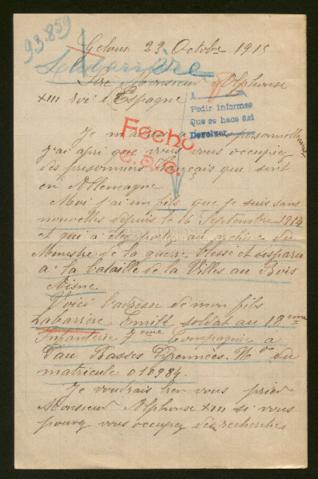 93.859
Gelous 29 Octobre 1915
Labarrère
Sire Monsieur Alphonse
XIII roi d'Espagne
A
Pedir informes
Que se hace así
Devolver
Fecho
Je
j'ai apri que vous vous occupiez
des prisonniers français que sont
en Allemagne
Moi j'ai un fils que je suis sans
nouvelles depuis le 14 Septembre 1914
et qui a été porté au archive du
Ministre de la guerre blessé et disparu
a la bataille de la Villes au Bois
Aisne
Voici l'adresse de mon fils
Labarrère Emile soldat au 18eme
Infanterie 7eme Compagnie a
Pau Basses Pyrennées. No du
matricule 016984
Je voudrais bien vous prier
Monsieur Alphonse XIII si vous
pouvez vous occupez des recherches